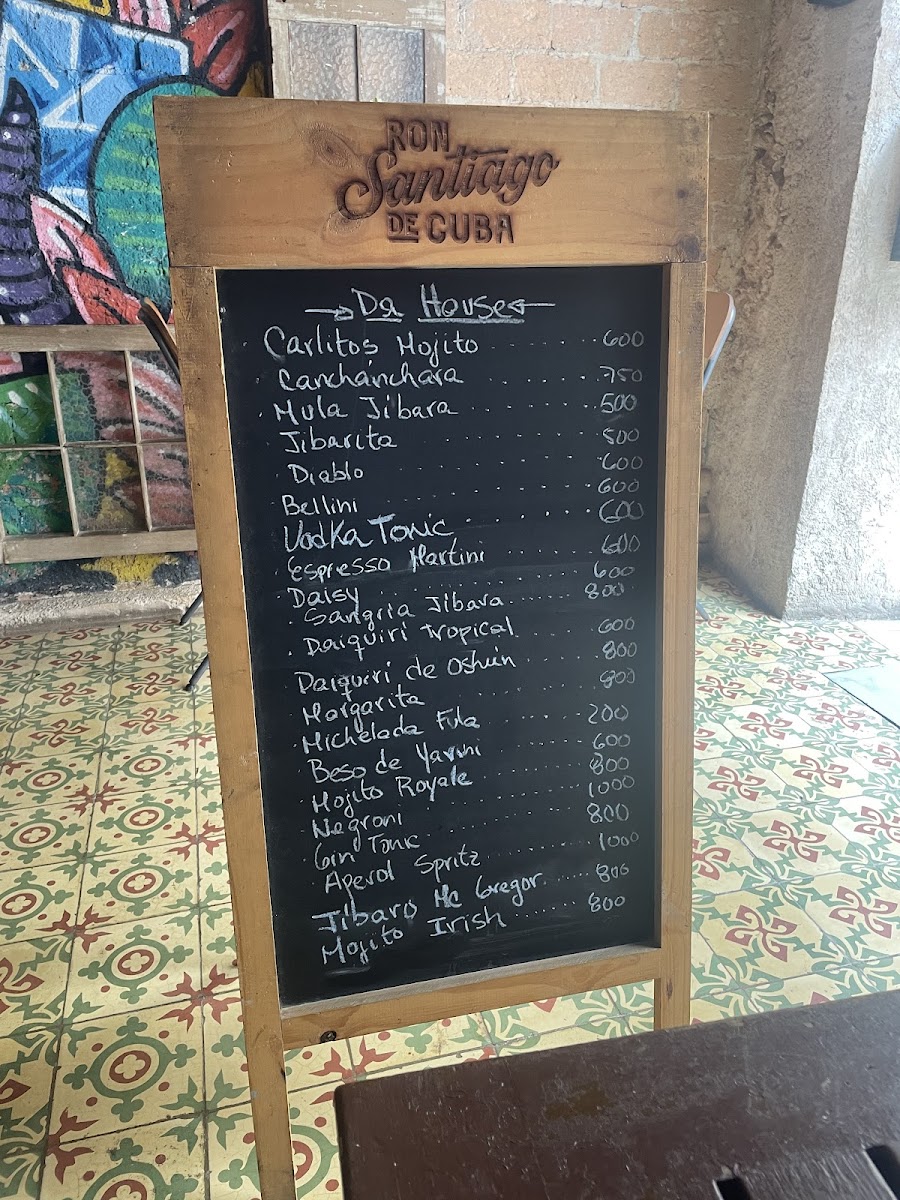 RON
Santiago
DE CUBA
Da House
Carlitos Mojito 600
Canchánchara 750
Mula Jibara 500
Jibarita 500
Diablo 600
Bellini 600
Vodka Tonic 600
Espresso Martini 600
Daisy 600
Sangria Jibara 800
Daiquiri Tropical 600
Daiquiri de Oshún 800
Margarita
Michelada Fula 200
Beso de Yarini 600
Mojito Royale 800
Negroni 1000
Gin Tonic 800
Aperol Spritz 1000
Jíbaro Mc Gregor 800
Mojito Irish 800